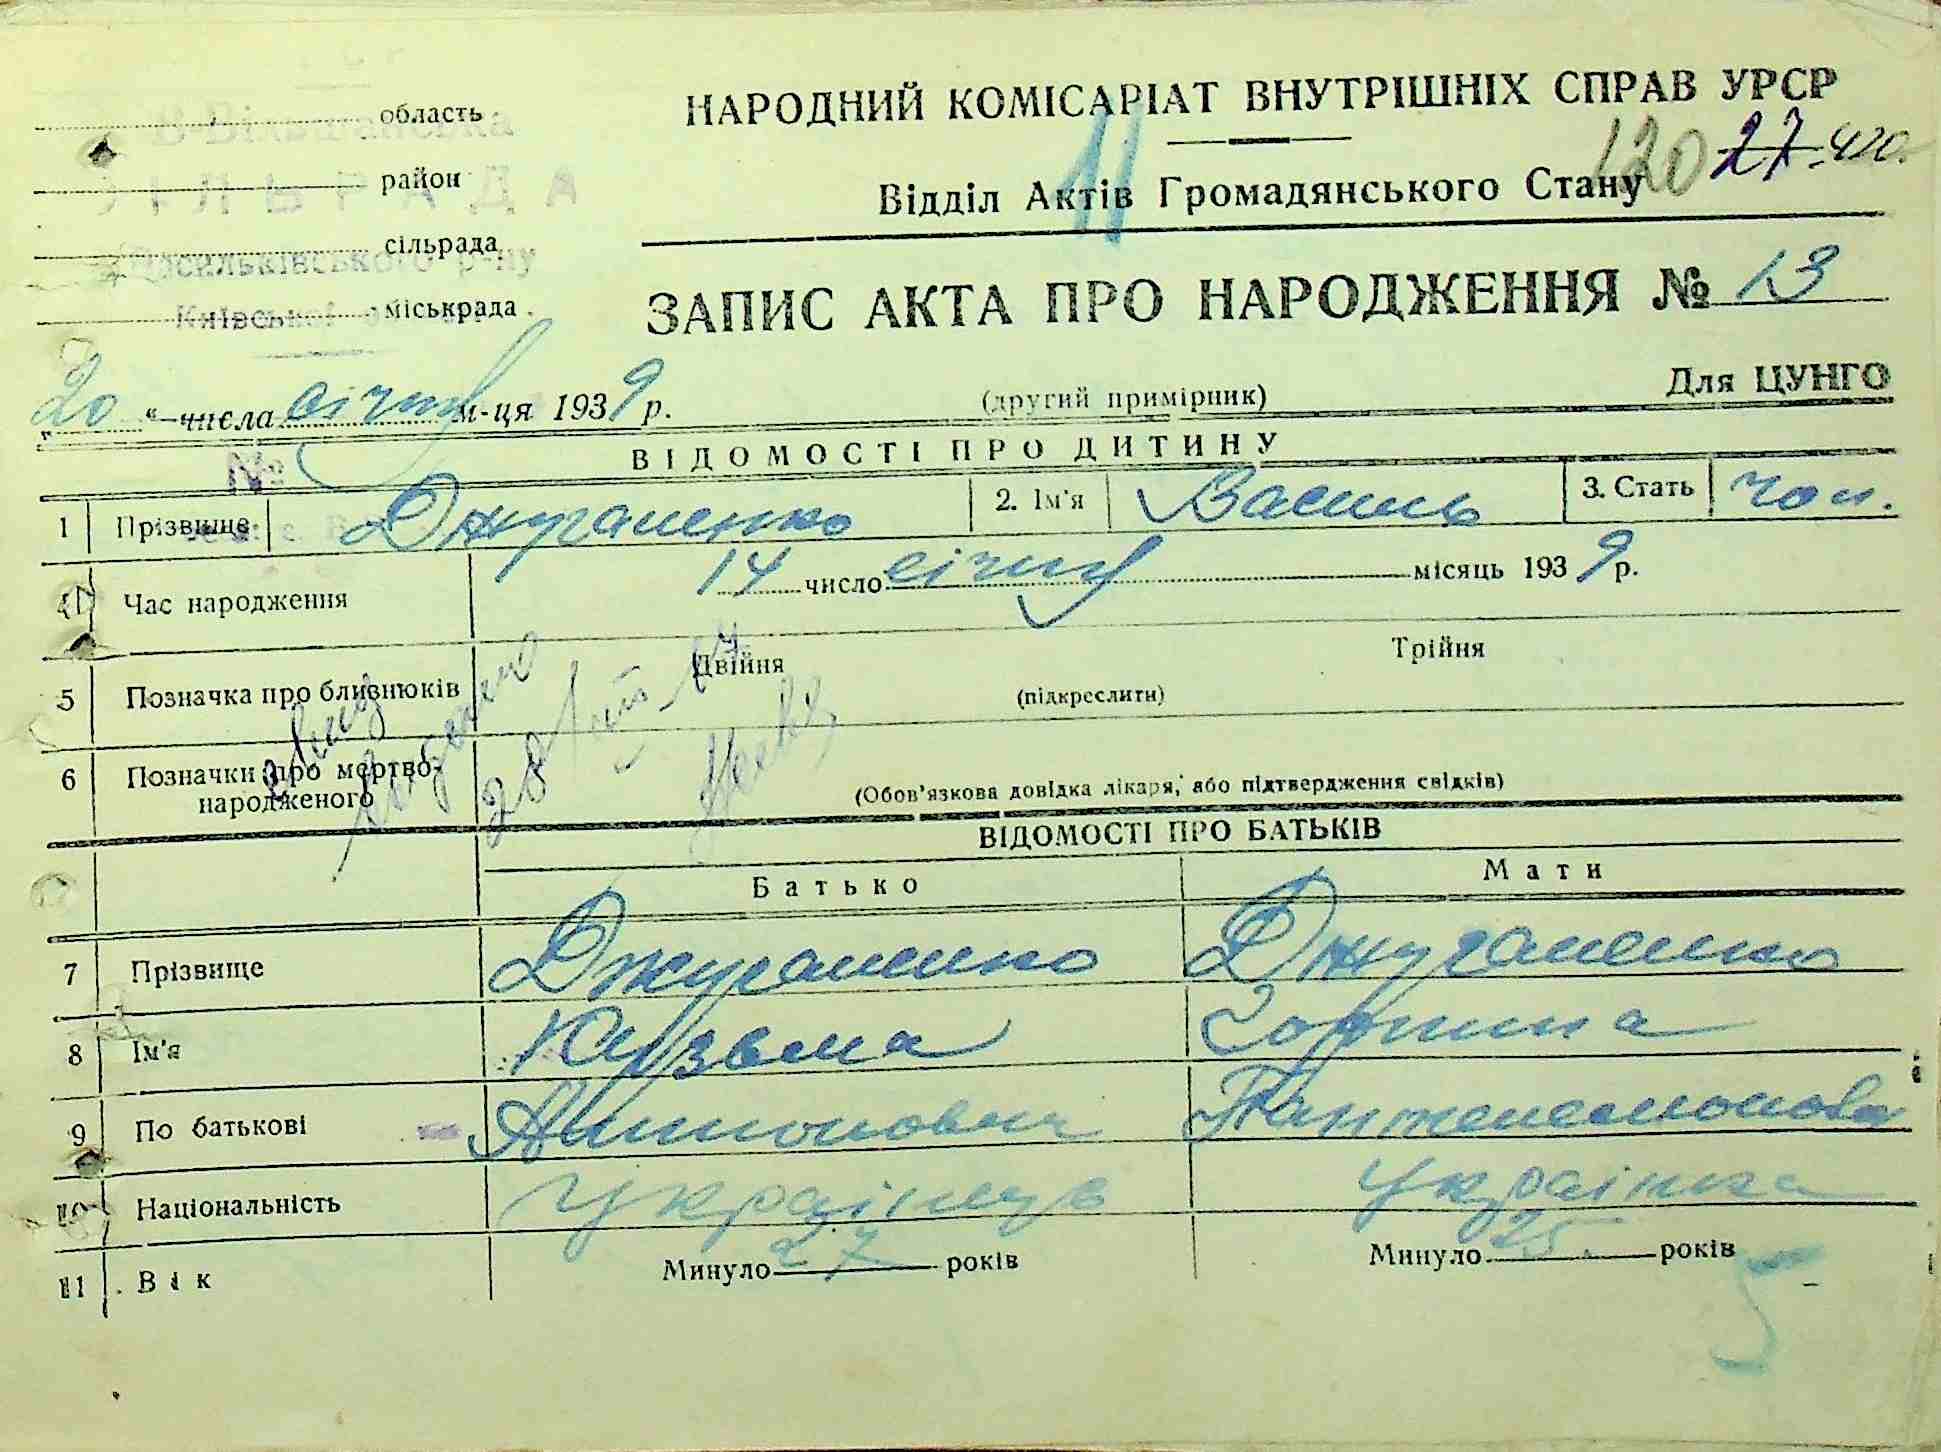 НАРОДНИЙ КОМІСАРІАТ ВНУТРІШНІХ СПРАВ УРСР
В-Вільшанська
СІЛЬРАДА
Васильківського р-ну
Київської
область
район
сільрада
міськрада
11
120 27 420.
Відділ Актів Громадянського Стану
ЗАПИС АКТА ПРО НАРОДЖЕННЯ № 13
„20“ числа січня м-ця 1939 р.
(другий примірник)
Для ЦУНГО
№
ВІДОМОСТІ ПРО ДИТИНУ
1 Прізвище Джуганенко 2. Ім'я Василь 3. Стать чол.
4 Час народження 14 число січня місяць 1939 р.
5 Позначка про близнюків Двійня (підкреслити) Трійня
6 Позначки про мертво-
народженого (Обов'язкова довідка лікаря, або підтвердження свідків)
ВІДОМОСТІ ПРО БАТЬКІВ
Батько Мати
7 Прізвище Джуганенко Джуганенко
8 Ім'я Кузьма Горпина
9 По батькові Антонович Пантелемонова
10 Національність Українець Українка
11 Вік Минуло 27 років Минуло 25. років
5